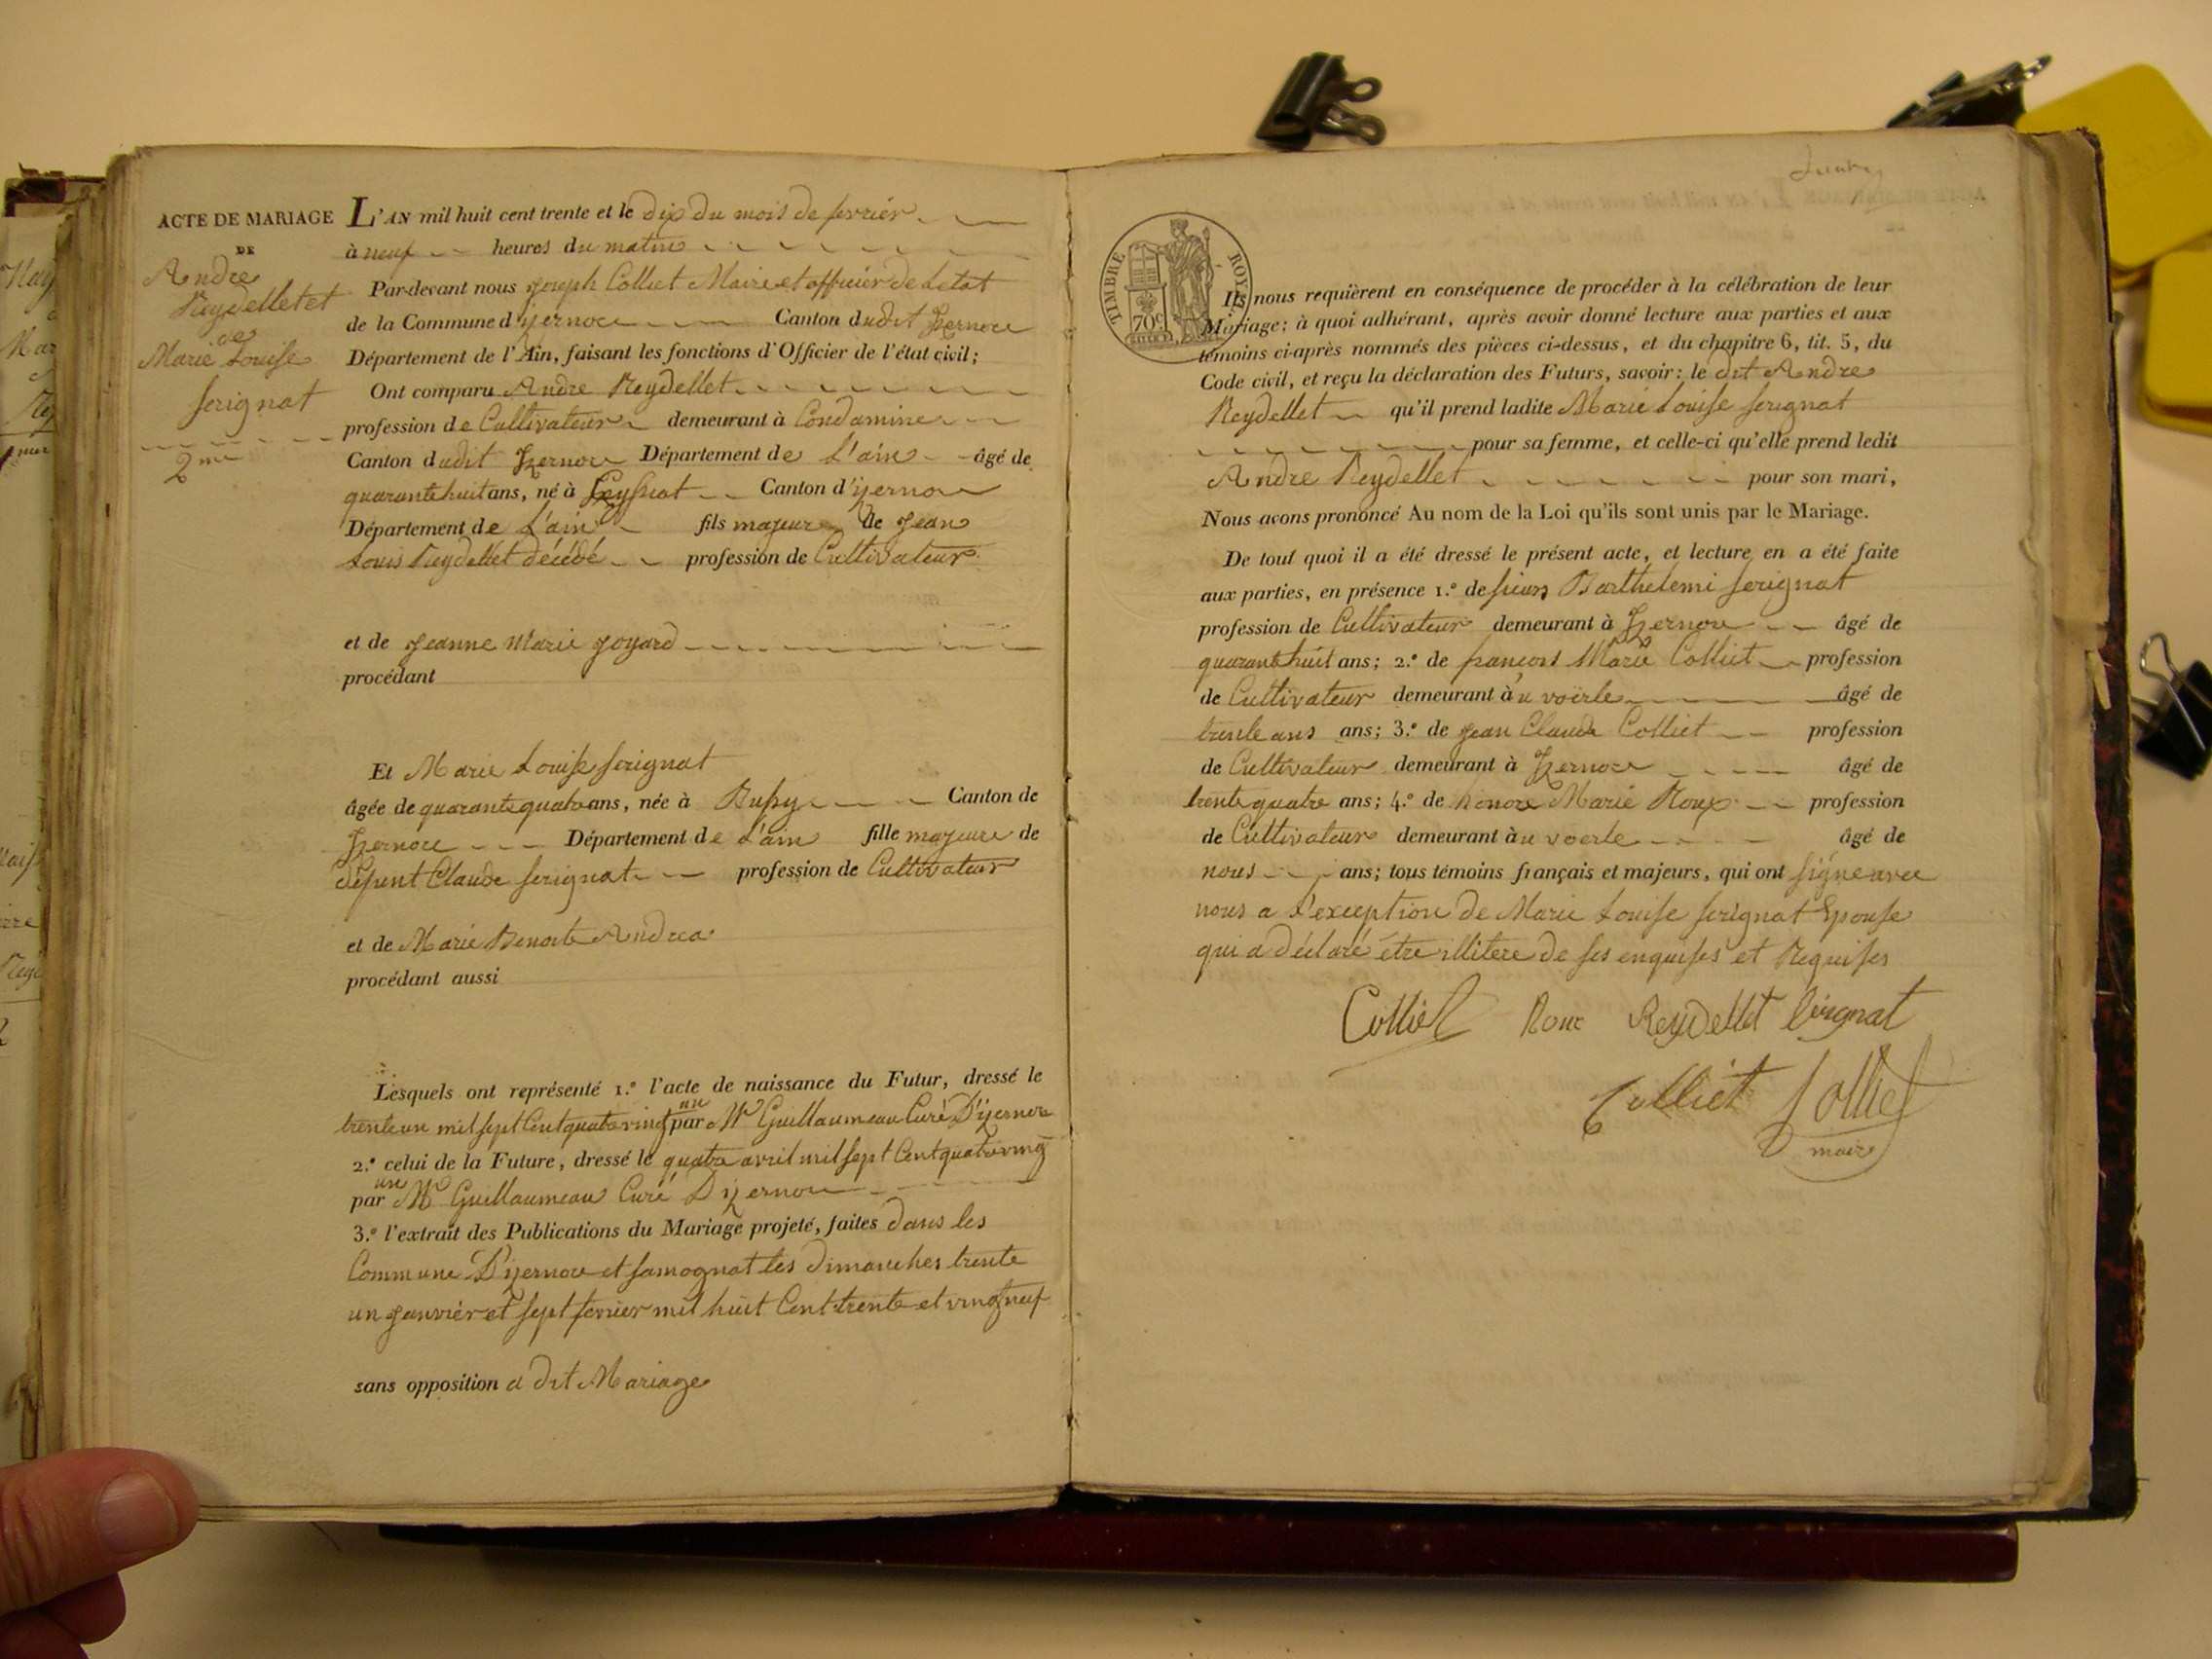 ACTE DE MARIAGE
DE
Andre
Reydellet et
de
Marie Louise
serignat
2me
L'AN mil huit cent trente et le dix du mois de fevrier
à neuf heures du matin
Par-devant nous joseph Colliet Maire et officier de Letat
de la Commune d'yzernore Canton dudit Izernore
Département de l'Ain, faisant les fonctions d'Officier de l'état civil;
Ont comparu Andre Reydellet
profession de Cultivateur demeurant à Condamine
Canton dudit Izernore Département de L'ain âgé de
quarante huit ans, né à Ceyssiat Canton d'izernore
Département de L'ain fils majeur de jean
Louis Reydellet décédé profession de Cultivateur
et de jeanne Marie joyard
procédant
Et Marie Louise serignat
âgée de quarante quatre ans, née à Bussy Canton de
Izernore Département de L'ain fille majeure de
défunt Claude serignat profession de Cultivateur
et de Marie Benoite Andrea
procédant aussi
Lesquels ont représenté 1.º l'acte de naissance du Futur, dressé le
trente un mil sept Cent quatre vingt un par Mr Guillaumeau Curé D'izernore
2.º celui de la Future, dressé le quatre avril mil sept Cent quatre ving
un par Mr Guillaumeau Curé D'izernore
3.º l'extrait des Publications du Mariage projeté, faites dans les
Commune D'izernore et samognat les dimanches trente
un janvier et sept fevrier mil huit Cent trente et vingt neuf
sans opposition a dit Mariage
TIMBRE ROYAL
70c
Ils nous requièrent en conséquence de procéder à la célébration de leur
Mariage; à quoi adhérant, après avoir donné lecture aux parties et aux
témoins ci-après nommés des pièces ci-dessus, et du chapitre 6, tit. 5, du
Code civil, et reçu la déclaration des Futurs, savoir: le dit Andre
Reydellet qu'il prend ladite Marie Louise serignat
pour sa femme, et celle-ci qu'elle prend ledit
Andre Reydellet pour son mari,
Nous avons prononcé Au nom de la Loi qu'ils sont unis par le Mariage.
De tout quoi il a été dressé le présent acte, et lecture en a été faite
aux parties, en présence 1.º de sieurs Barthelemi serignat
profession de Cultivateur demeurant à Izernore âgé de
quarante huit ans; 2.º de françois Marie Colliet profession
de Cultivateur demeurant àu voërle âgé de
trente ans ans; 3.º de jean Claude Colliet profession
de Cultivateur demeurant à Izernore âgé de
trente quatre ans; 4.º de honore Marie Roux profession
de Cultivateur demeurant àu voerle âgé de
nous ans; tous témoins français et majeurs, qui ont signe avec
nous a L'exception de Marie Louise serignat Epouse
qui a déclaré être illitere de ses enquises et Requises
Colliet Roux Reydellet serignat
Colliet Colliet
maire